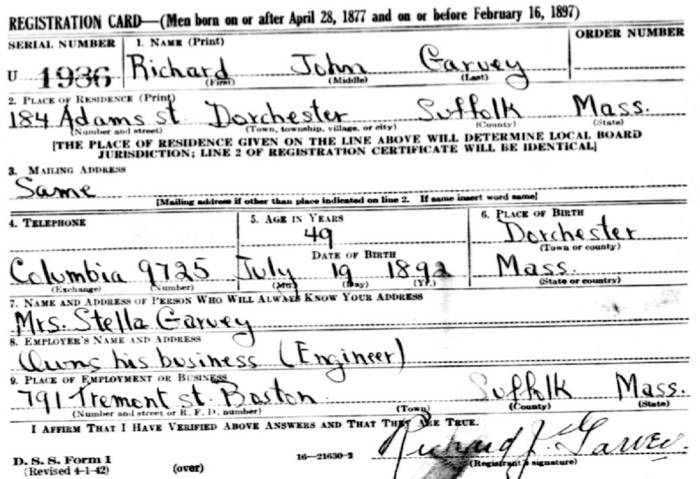 REGISTRATION CARD—(Men born on or after April 28, 1877 and on or before February 16, 1897)
SERIAL NUMBER 1. NAME (Print) ORDER NUMBER
U 1936 Richard John Garvey
(First) (Middle) (Last)
2. PLACE OF RESIDENCE (Print)
184 Adams st. Dorchester Suffolk Mass.
(Number and street) (Town, township, village, or city) (County) (State)
[THE PLACE OF RESIDENCE GIVEN ON THE LINE ABOVE WILL DETERMINE LOCAL BOARD
JURISDICTION; LINE 2 OF REGISTRATION CERTIFICATE WILL BE IDENTICAL]
3. MAILING ADDRESS
Same
[Mailing address if other than place indicated on line 2. If same insert word same]
4. TELEPHONE 5. AGE IN YEARS 6. PLACE OF BIRTH
49 Dorchester
DATE OF BIRTH (Town or county)
Columbia 9725 July 19 1892 Mass.
(Exchange) (Number) (Mo.) (Day) (Yr.) (State or country)
7. NAME AND ADDRESS OF PERSON WHO WILL ALWAYS KNOW YOUR ADDRESS
Mrs. Stella Garvey
8. EMPLOYER'S NAME AND ADDRESS
Owns his business (Engineer)
9. PLACE OF EMPLOYMENT OR BUSINESS
791 Tremont st. Boston Suffolk Mass.
(Number and street or R. F. D. number) (Town) (County) (State)
I AFFIRM THAT I HAVE VERIFIED ABOVE ANSWERS AND THAT THEY ARE TRUE.
Richard J. Garvey
D. S. S. Form 1 16—21630-2 (Registrant's signature)
(Revised 4-1-42) (over)